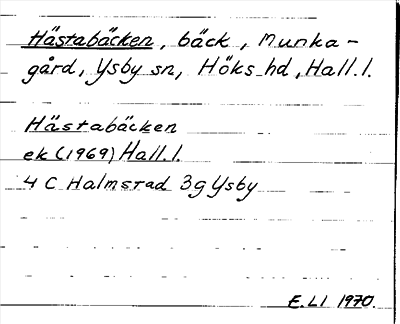 Hästabäcken, bäck, Munka-
gård, Ysby sn, Höks hd, Hall. l.
Hästabäcken
ek (1969) Hall. l.
4 C Halmstad 3g Ysby
E. LI 1970.